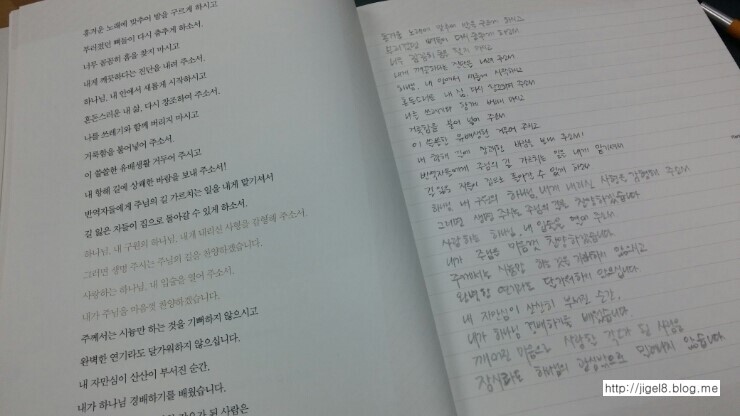 흥겨운 노래에 맞추어 발을 구르게 하시고
부러졌던 뼈들이 다시 춤추게 하소서.
너무 꼼꼼히 흠을 찾지 마시고
내게 깨끗하다는 진단을 내려 주소서.
하나님, 내 안에서 새롭게 시작하시고
혼돈스러운 내 삶, 다시 창조하여 주소서.
나를 쓰레기와 함께 버리지 마시고
거룩함을 불어넣어 주소서.
이 쓸쓸한 유배생활 거두어 주시고
내 항해 길에 상쾌한 바람을 보내 주소서!
반역자들에게 주님의 길 가르치는 일을 내게 맡기셔서
길 잃은 자들이 집으로 돌아갈 수 있게 하소서.
하나님, 내 구원의 하나님, 내게 내리신 사형을 감형해 주소서.
그러면 생명 주시는 주님의 길을 찬양하겠습니다.
사랑하는 하나님, 내 입술을 열어 주소서.
내가 주님을 마음껏 찬양하겠습니다.
주께서는 시늉만 하는 것을 기뻐하지 않으시고
완벽한 연기라도 달가워하지 않으십니다.
내 자만심이 산산이 부서진 순간,
내가 하나님 경배하기를 배웠습니다.
흥겨운 노래에 맞추어 발을 구르게 하시고
부러졌던 뼈들이 다시 춤추게 하소서
너무 꼼꼼히 흠을 찾지 마시고
내게 깨끗하다는 진단을 내려 주소서
하나님, 내 안에서 새롭게 시작하시고
혼돈스러운 내 삶, 다시 창조하여 주소서
나를 쓰레기와 함께 버리지 마시고
거룩함을 불어 넣어 주소서
이 쓸쓸한 유배생활 거두어 주시고
내 항해 길에 상쾌한 바람을 보내 주소서!
반역자들에게 주님의 길 가르치는 일을 내게 맡기셔서
길 잃은 자들이 집으로 돌아갈 수 있게 하소서
하나님, 내 구원의 하나님, 내게 내리신 사형을 감형해 주소서
그러면 생명 주시는 주님의 길을 찬양하겠습니다
사랑하는 하나님 내 입술을 열어 주소서
내가 주님을 마음껏 찬양하겠습니다
주께서는 시늉만 하는 것을 기뻐하지 않으시고
완벽한 연기라도 달가워하지 않으십니다.
내 자만심이 산산히 부서진 순간,
내가 하나님 경배하기를 배웠습니다
깨어진 마음으로 사랑할 각오가 된 사람은
잠시라도 하나님의 관심밖으로 밀려나지 않습니다.
http://jigel8.blog.me